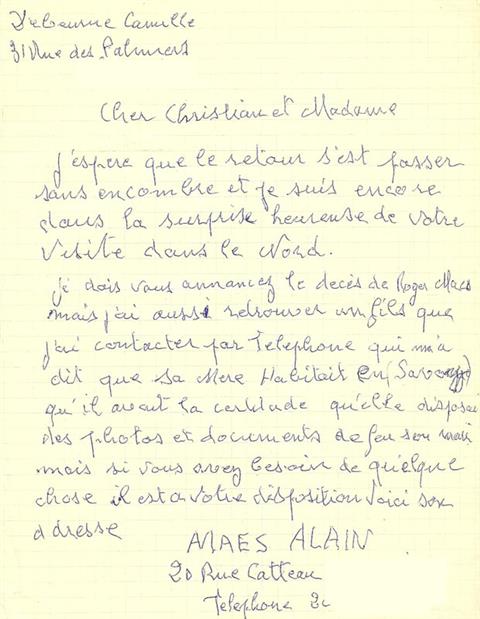 Debeurme Camille
31 Rue des Palmiers
Cher Christian et Madame
j'espere que le retour s'est passer
sans encombre et je suis encore
dans la surprise heureuse de votre
visite dans le Nord.
je dois vous annoncez le decès de Roger Maes
mais j'ai aussi retrouver un fils que
j'ai contacter par Telephone qui m'a
dit que sa Mere Habitait En (Savoie)
qu'il avait la certitude qu'elle disposai
des photos et documents de feu son mari
mais si vous avez besoin de quelque
chose il est a votre disposition Voici son
adresse
MAES ALAIN
20 Rue Catteau
Telephone 20